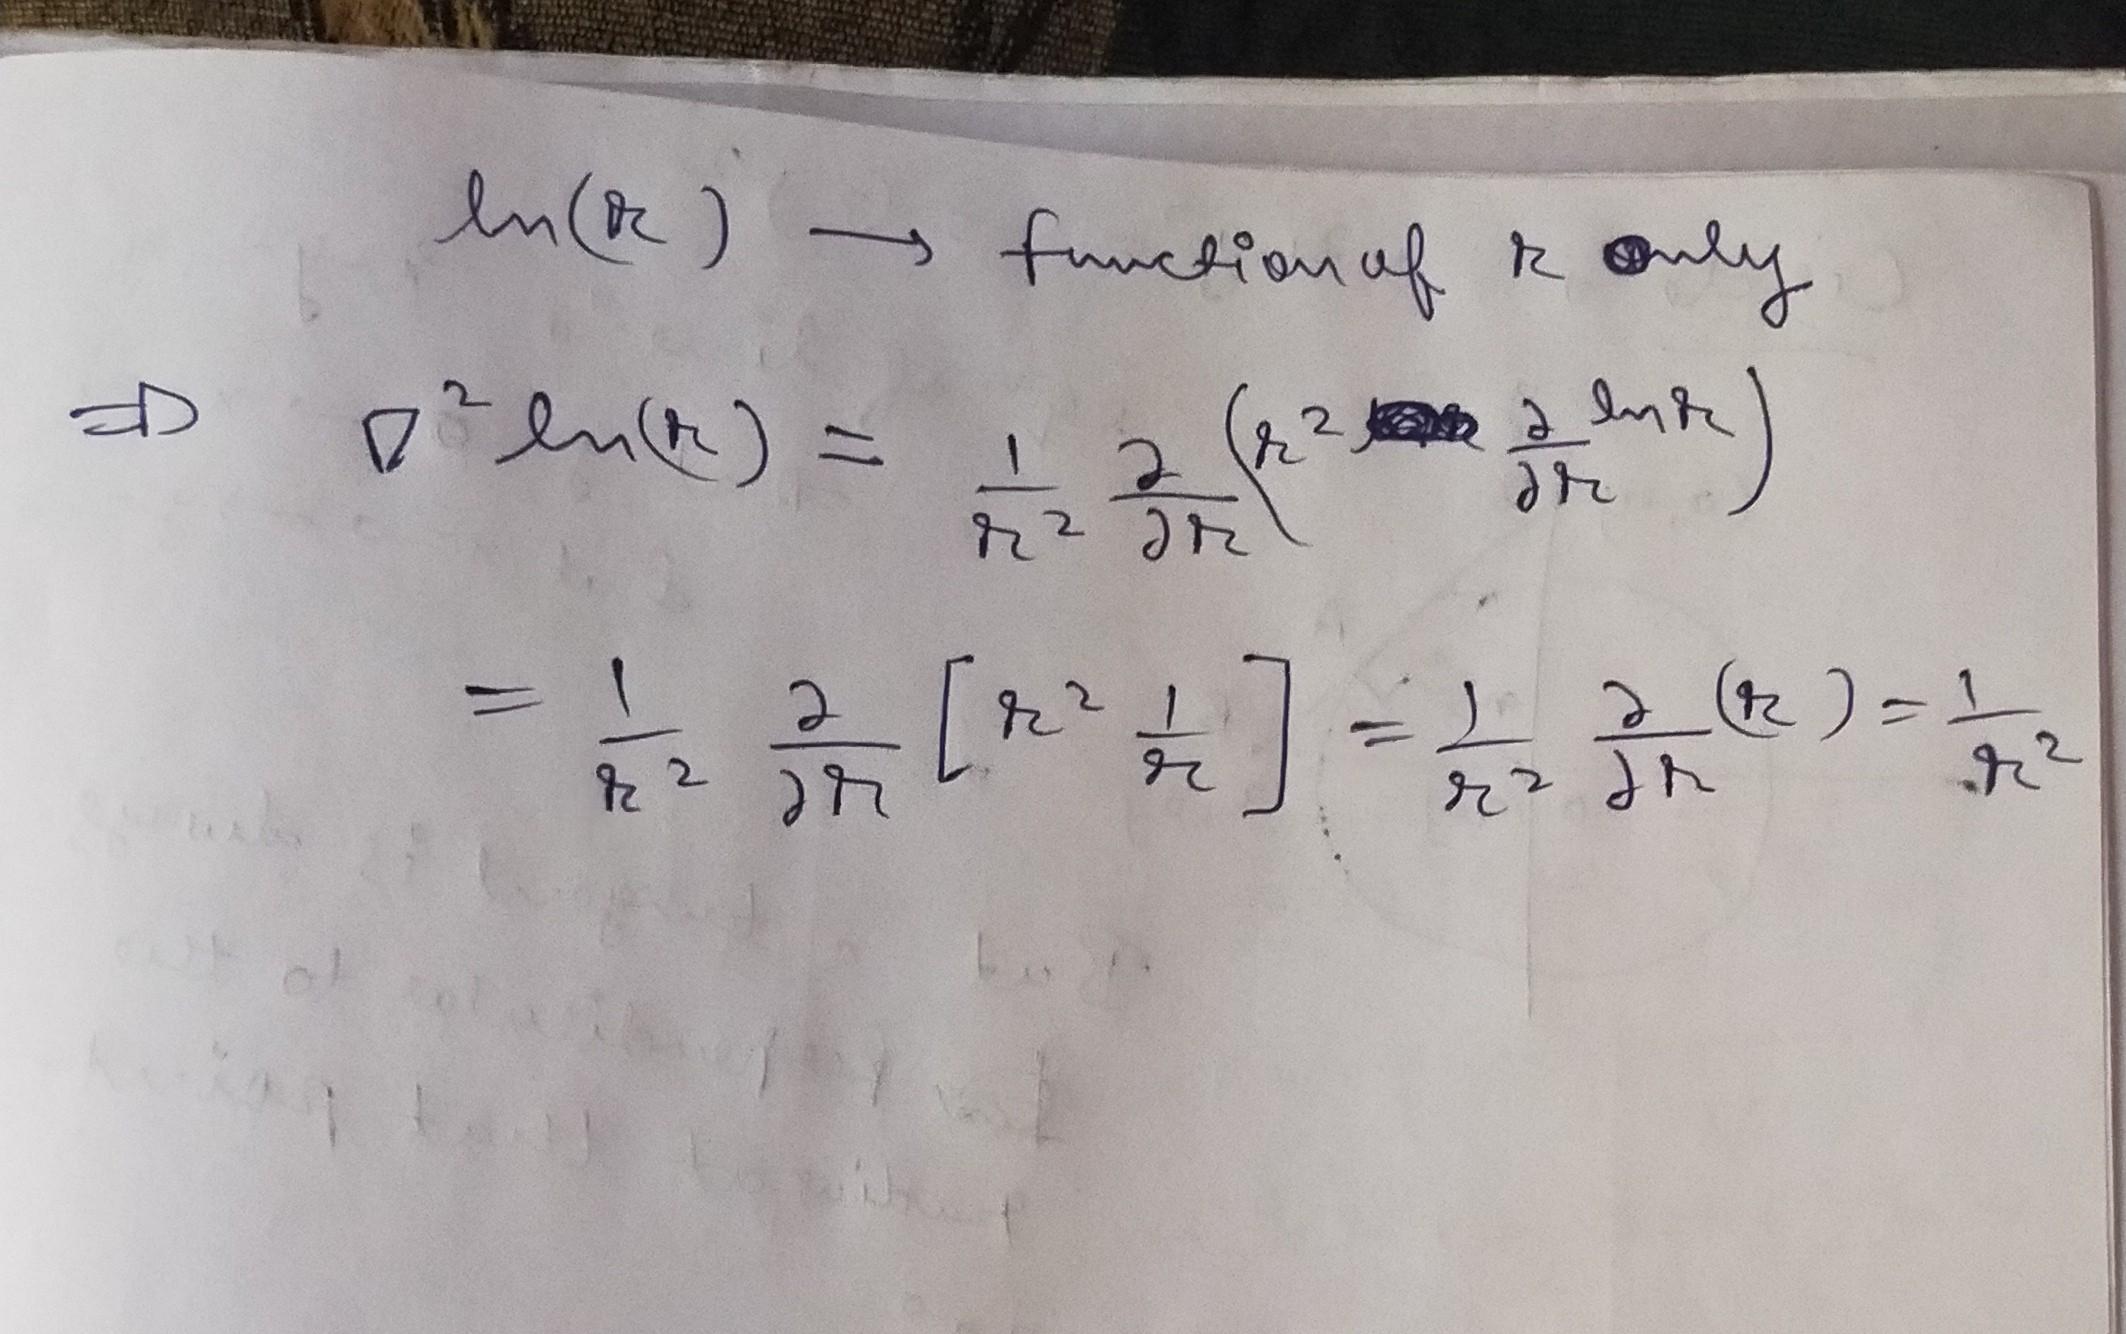 ln(r) → function of r only
⇒ ∇² ln(r) = 1/r² ∂/∂r (r² ∂/∂r ln r)
= 1/r² ∂/∂r [r² 1/r] = 1/r² ∂/∂r (r) = 1/r²